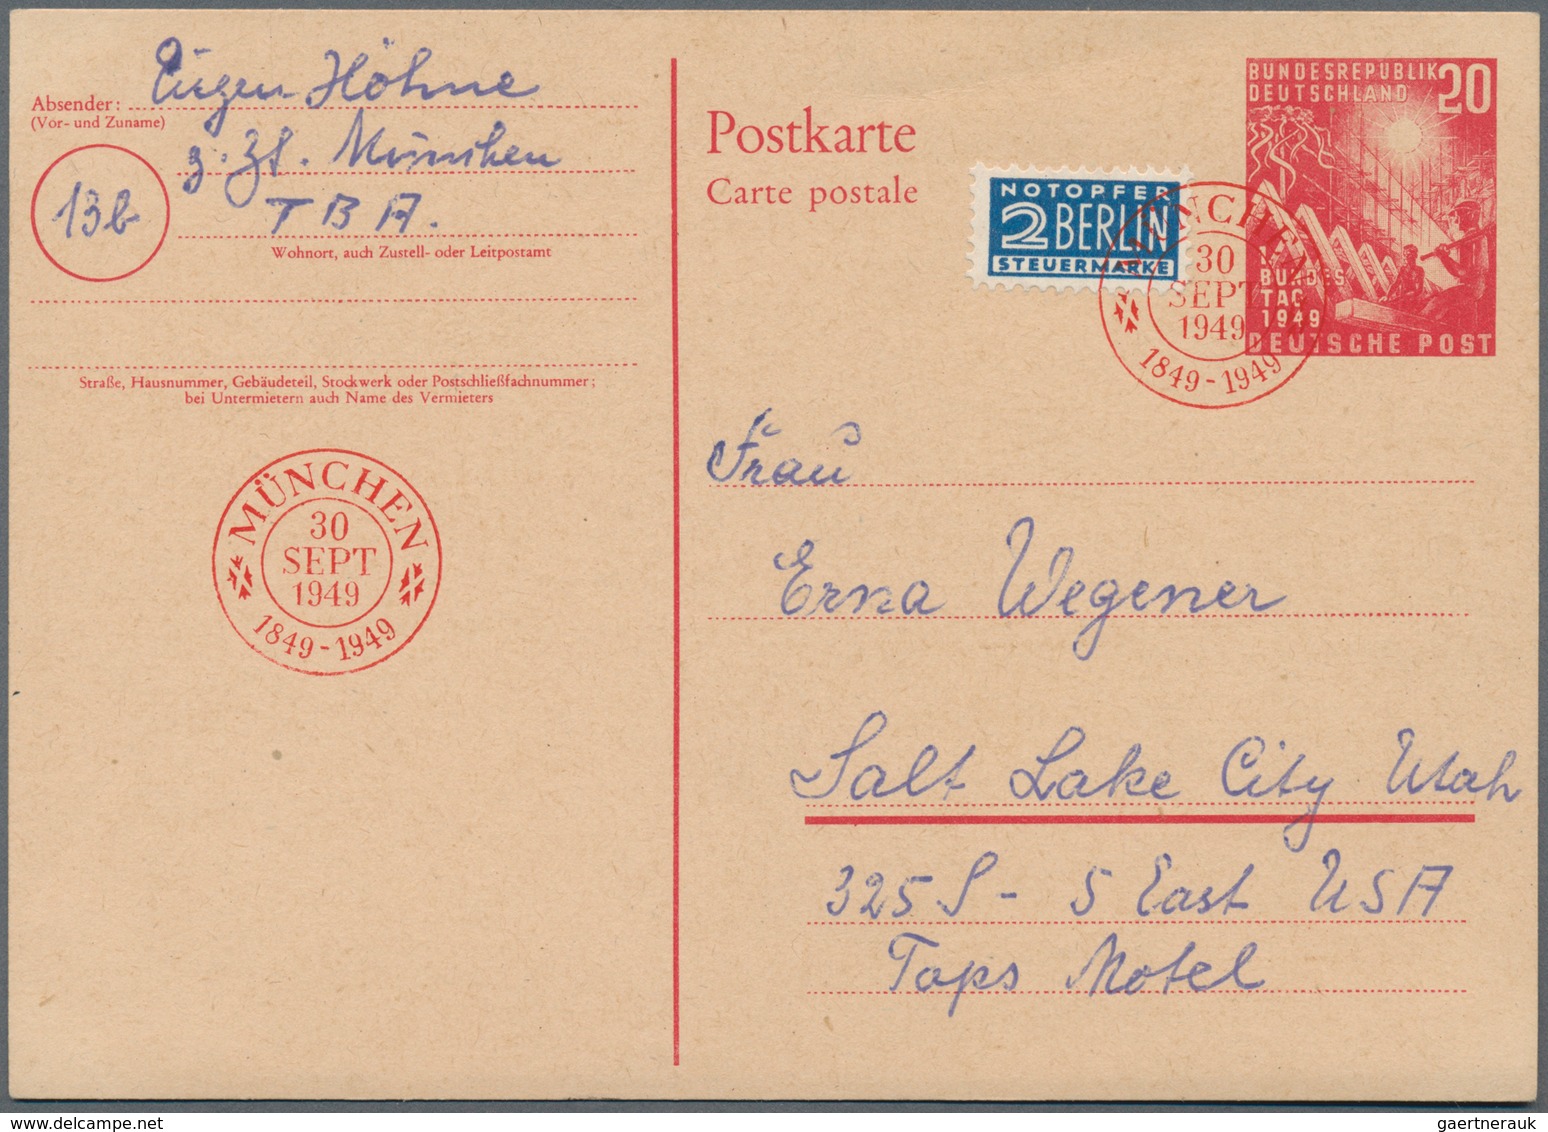 Absender: Eugen Höhne
(Vor- und Zuname)
z. Zt. München
13b
T B A.
Wohnort, auch Zustell- oder Leitpostamt
Straße, Hausnummer, Gebäudeteil, Stockwerk oder Postschließfachnummer;
bei Untermietern auch Name des Vermieters
MÜNCHEN
30
SEPT
1949
1849-1949
Postkarte
Carte postale
NOTOPFER
2 BERLIN
STEUERMARKE
MÜNCHEN
30
SEPT
1949
1849-1949
BUNDESREPUBLIK 20
DEUTSCHLAND
BUNDES
TAG
1949
DEUTSCHE POST
Frau
Erna Wegener
Salt Lake City Utah
325 S - 5 East USA
Taps Motel
gaertnerauk